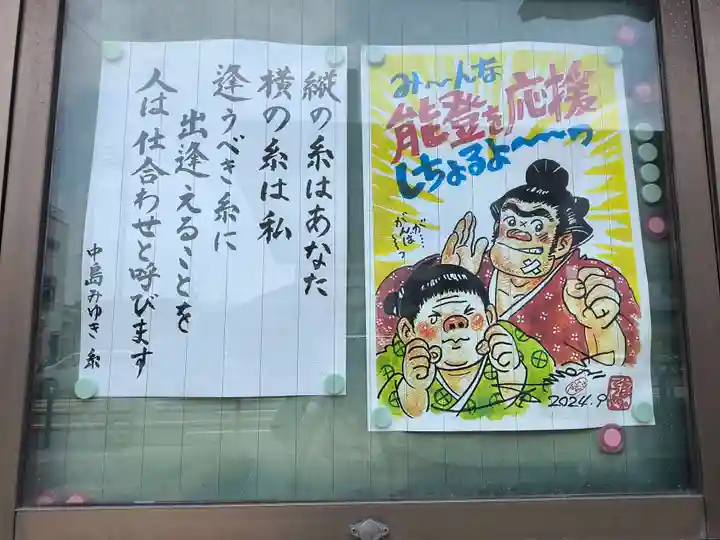 縦の糸はあなた
横の糸は私
逢うべき糸に
出逢えることを
人は仕合わせと呼びます
中島みゆき 糸
み〜んな
能登を応援
しちょるよ〜〜っ
が…
がんばろっ
2024.9